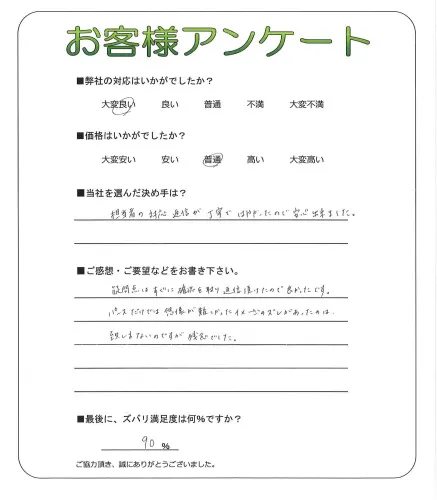 お客様アンケート
■弊社の対応はいかがでしたか？
大変良い 良い 普通 不満 大変不満
■価格はいかがでしたか？
大変安い 安い 普通 高い 大変高い
■当社を選んだ決め手は？
担当者の対応 返信が丁寧ではやかったので安心出来ました。
■ご感想・ご要望などをお書き下さい。
疑問点はすぐに確認を取り返信頂けたので良かったです。
パースだけでは想像が難しかったイメージのズレがあったのは
致しまないのですが残念でした。
■最後に、ズバリ満足度は何％ですか？
90 %
ご協力頂き、誠にありがとうございました。